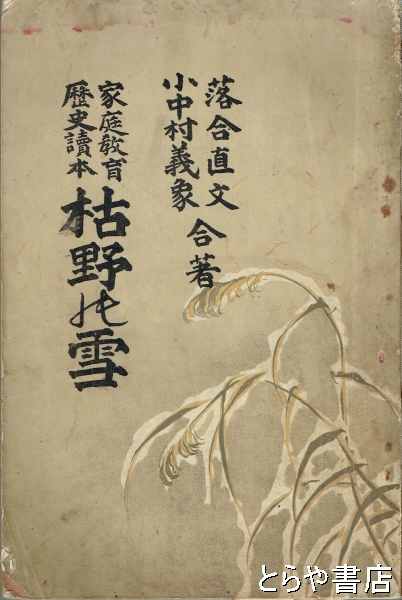 落合直文
小中村義象
合著
家庭教育
歴史讀本
枯野の雪
とらや書店